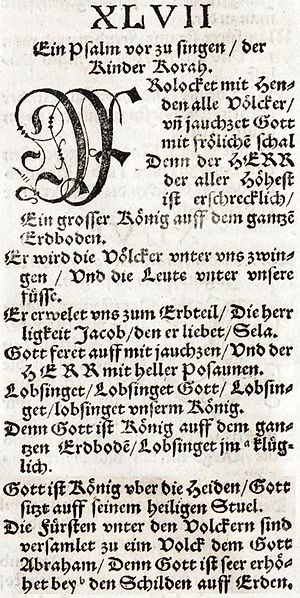 XLVII
Ein Psalm vor zu singen / der
Kinder Korah.
FRolocket mit Hen-
den alle Völcker/
vñ jauchzet Gott
mit frölichē schal
Denn der HERR
der aller Höhest
ist erschrecklich/
Ein grosser König auff dem gantzē
Erdboden.
Er wird die Völcker vnter vns zwin-
gen / Vnd die Leute vnter vnsere
füsse.
Er erwelet vns zum Erbteil/ Die herr
ligkeit Jacob/ den er liebet/ Sela.
Gott feret auff mit jauchzen/ Vnd der
HERR mit heller Posaunen.
Lobsinget/ Lobsinget Gott/ Lobsin-
get/ lobsinget vnserm König.
Denn Gott ist König auff dem gan-
tzen Erdbodē/ Lobsinget jm ᵃ klüg-
lich.
Gott ist König vber die Heiden/ Gott
sitzt auff seinem heiligen Stuel.
Die Fürsten vnter den Volckern sind
versamlet zu eim Volck dem Gott
Abraham/ Denn Gott ist seer erhö-
het bey ᵇ den Schilden auff Erden.